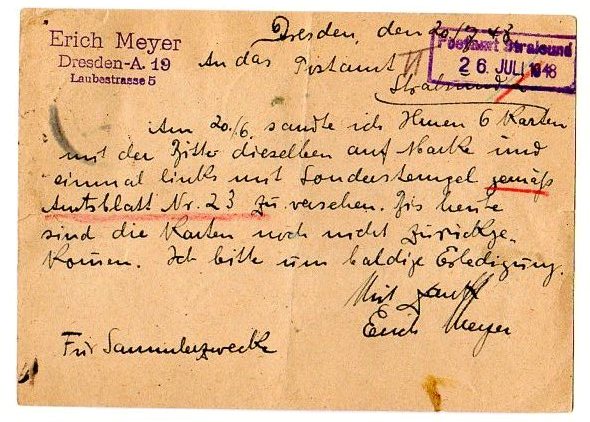 Erich Meyer
Dresden-A. 19
Laubestrasse 5
Dresden, den 20/7 48
Postamt Stralsund
26. JULI 1948
An das Postamt
Stralsund
Am 20/6. sandte ich Ihnen 6 Karten
mit der Bitte dieselben auf Marke und
einmal links mit Sonderstempel gemäß
Amtsblatt Nr. 23 zu versehen. Bis heute
sind die Karten noch nicht zurückge-
kommen. Ich bitte um baldige Erledigung.
Mit
Erich Meyer
Für Sammlerzwecke